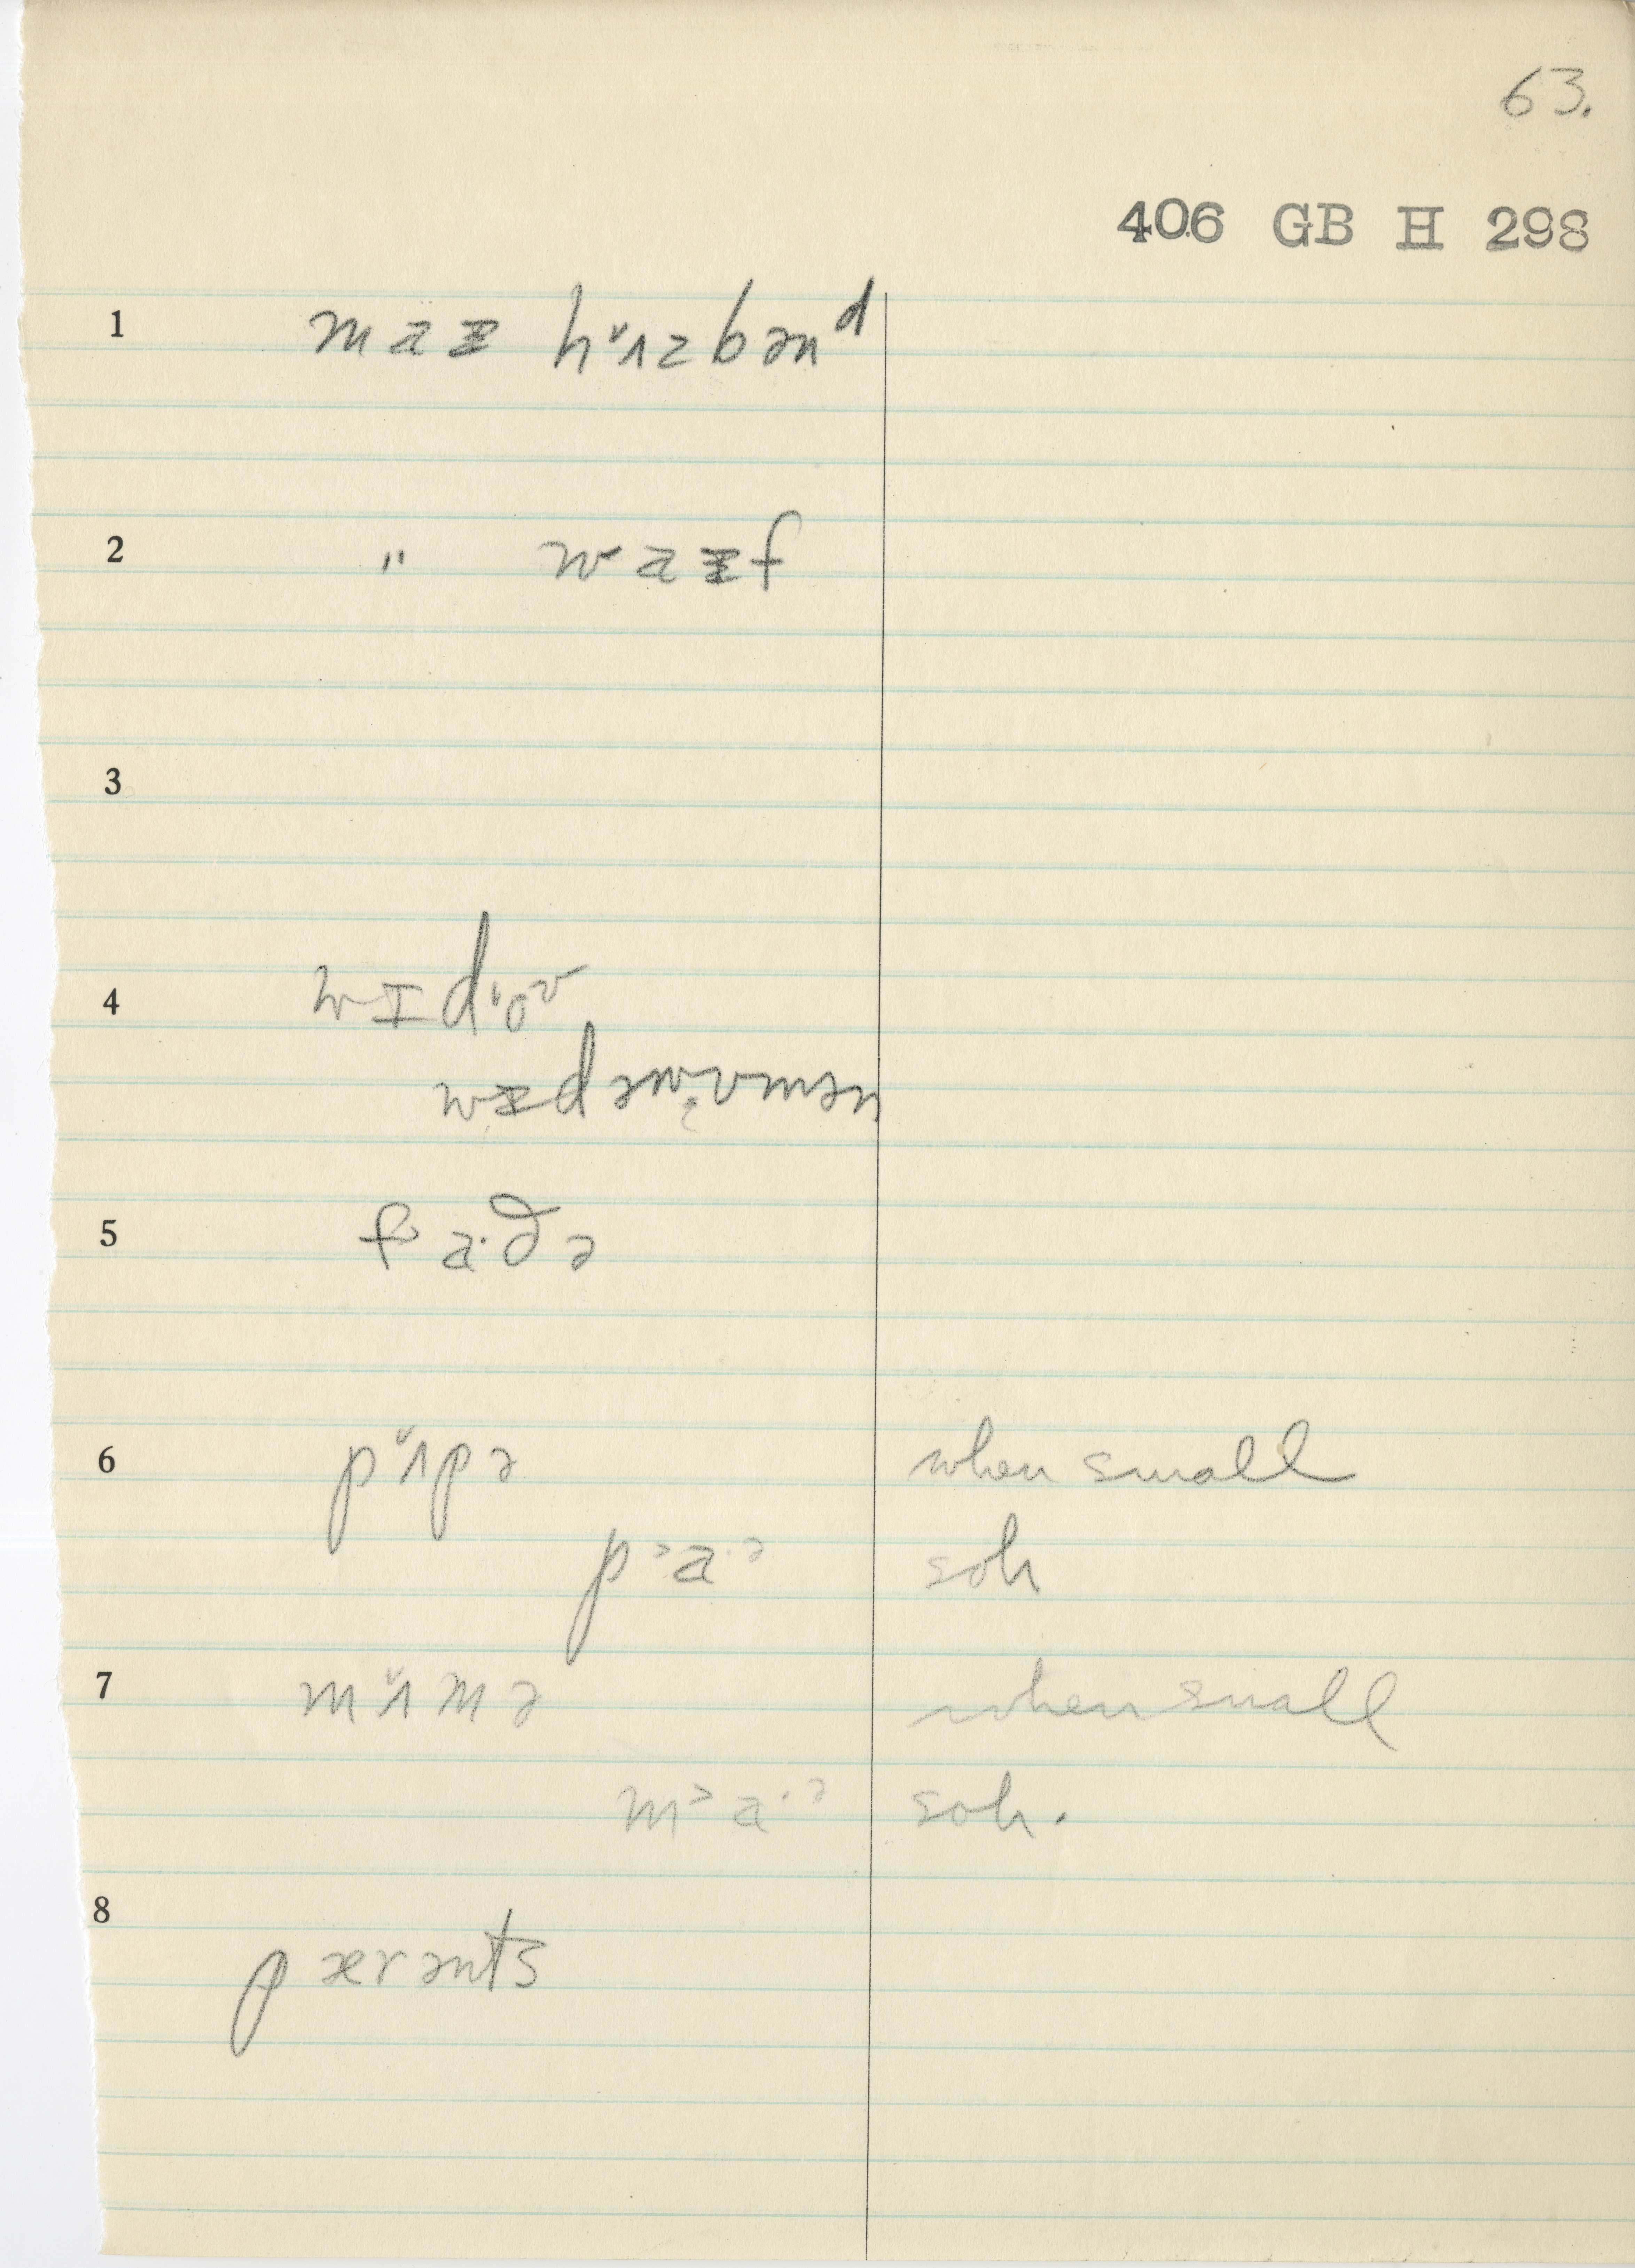 63.
406 GB H 298
1 maɪ hʌ̌zbənᵈ
2 " waɪf
3
4 wɪdˈoᶷ
wɪdəwʊmən
5 faˑðə
6 pʌ̌pə when small
pᵊaˑᵊ soh
7 mʌ̌mə when small
mᵊaˑᵊ soh.
8 pærənts